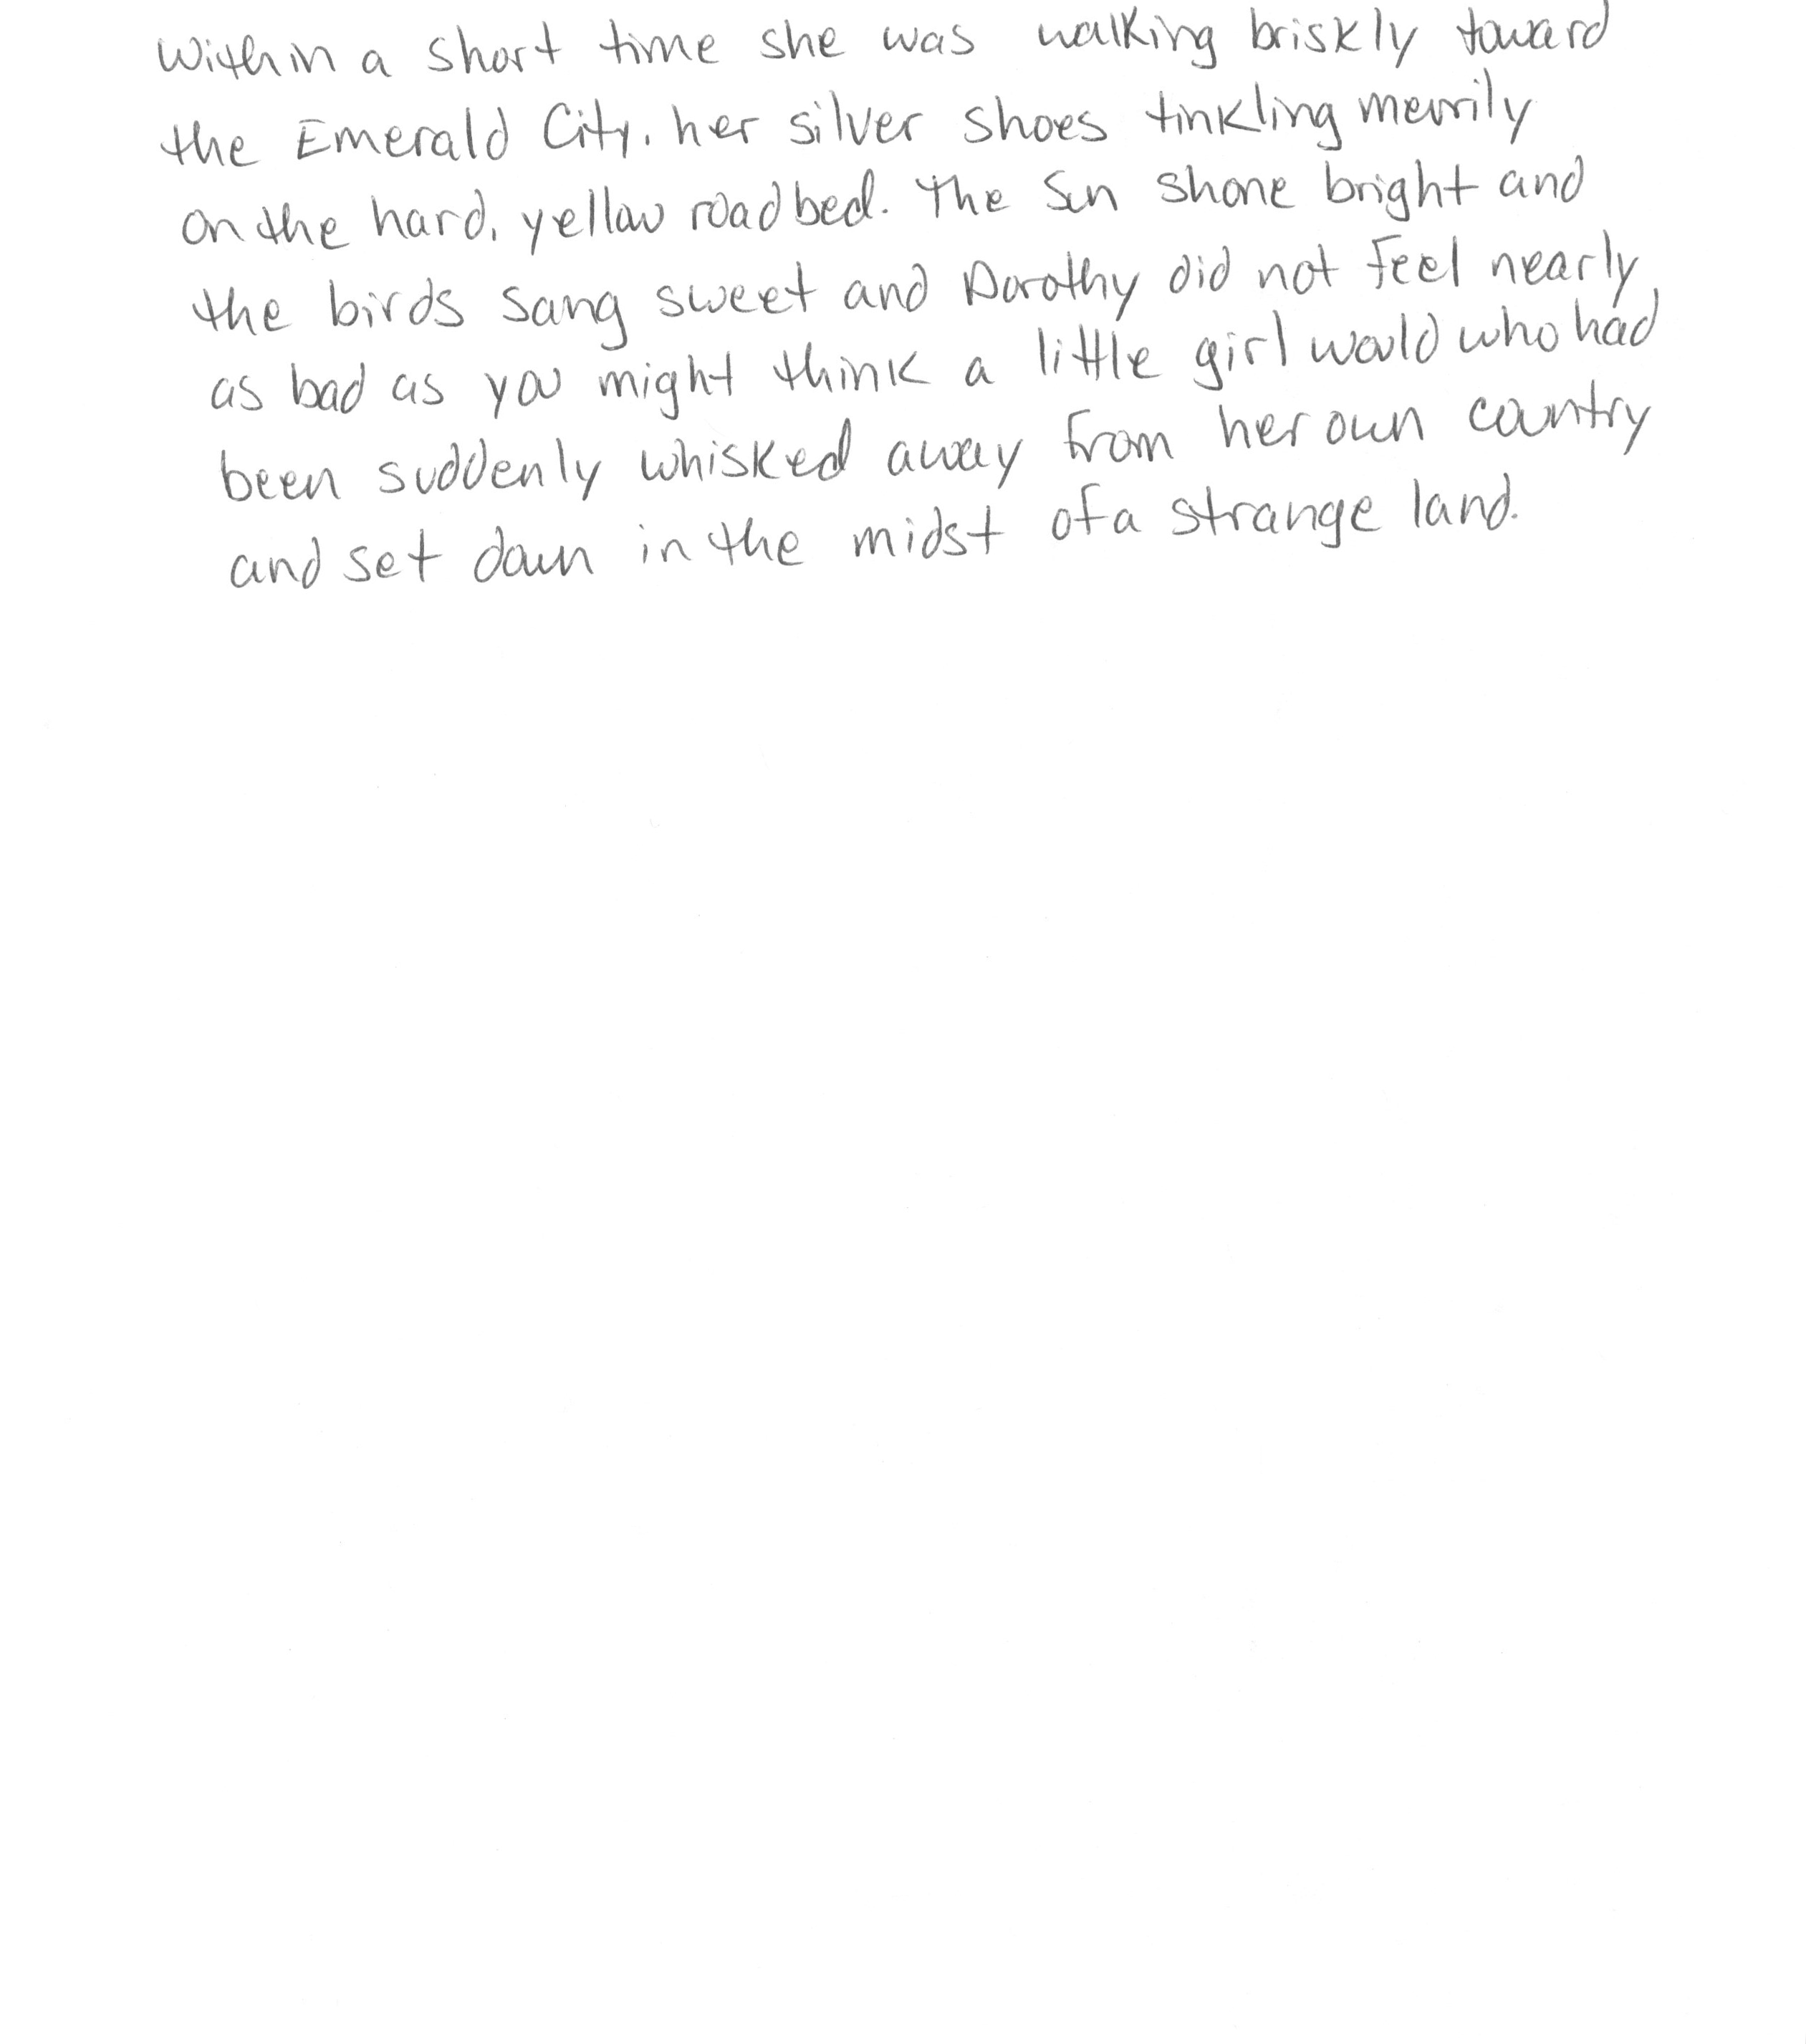 Within a short time she was walking briskly toward
the Emerald City, her silver shoes tinkling merrily
on the hard, yellow roadbed. The sun shone bright and
the birds sang sweet and Dorothy did not feel nearly
as bad as you might think a little girl would, who had
been suddenly whisked away from her own country
and set down in the midst of a strange land.